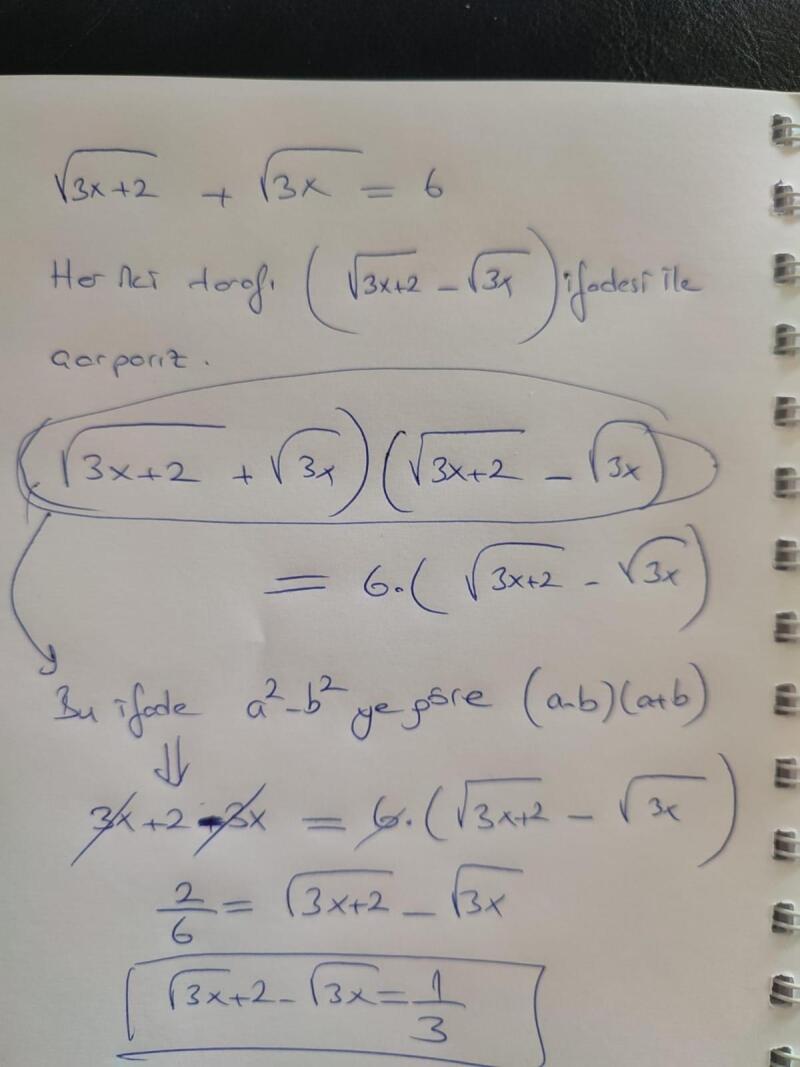 √3x+2 + √3x = 6
Her iki tarafı (√3x+2 - √3x) ifadesi ile
çarparız.
(√3x+2 + √3x)(√3x+2 - √3x)
= 6.(√3x+2 - √3x)
Bu ifade a²-b² ye göre (a-b)(a+b)
⇓
3x+2-3x = 6.(√3x+2 - √3x)
2/6 = √3x+2 - √3x
√3x+2 - √3x = 1/3